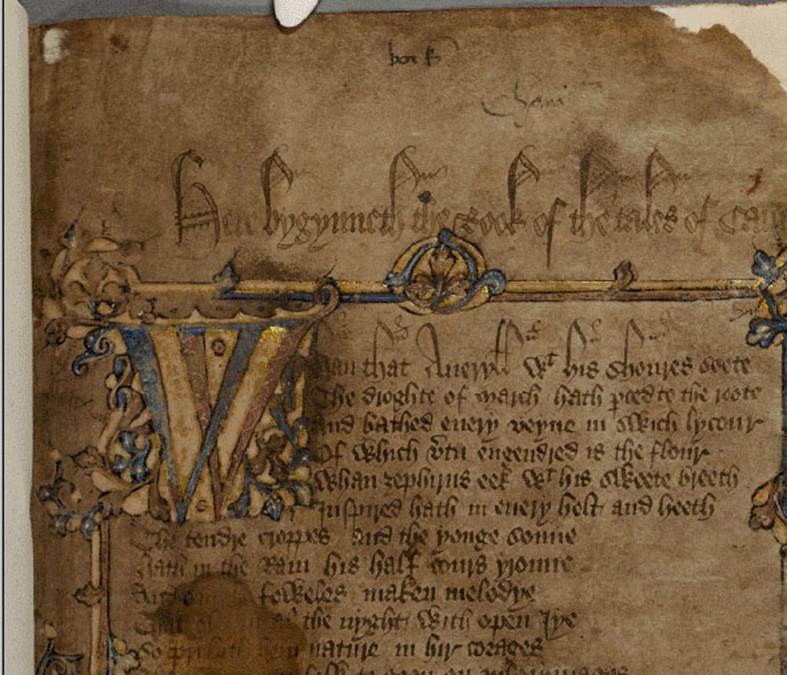 Here bygynneth the Book of the tales of Cau
Whan that Aueryłł wt his shoures soote
The droghte of March hath pced to the roote
And bathed euery veyne in swich lycour
Of which vtu engendred is the flour
Whan zephirus eek wt his swete breeth
Inspired hath in euery holt and heeth
The tendre croppes and the yonge sonne
Hath in the Ram his half cours yronne
And foweles maken melodye
That al the nyght with open Iye
So priketh hem nature in hir corages
folk to goon on pilgrymages